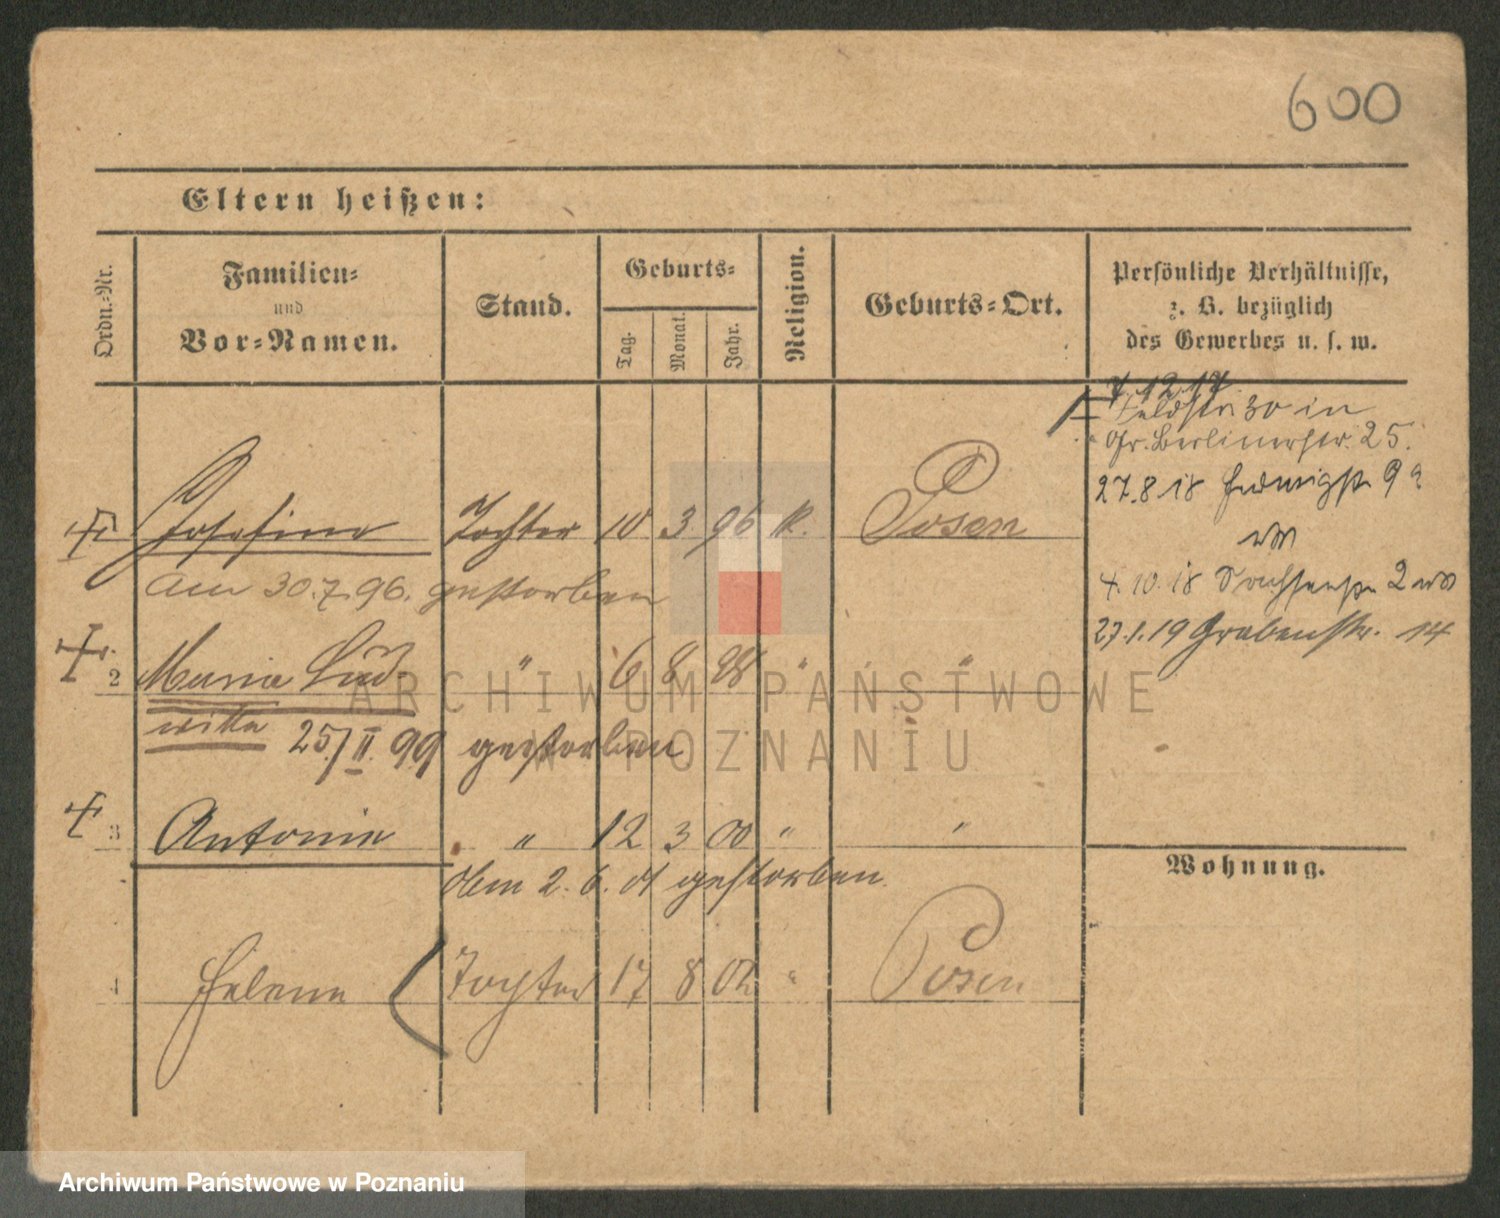 600
Eltern heißen:
Ordn.-Nr.
Familien-
und
Vor-Namen.
Stand.
Geburts-
Tag.
Monat.
Jahr.
Religion.
Geburts-Ort.
Persönliche Verhältnisse,
z. B. bezüglich
des Gewerbes u. s. w.
7.12.17
Feldstr 30 in
Gr. Berlinerstr. 25.
27.8.18 Hedwigstr 9
4.10.18 Sachsenstr 2
27.1.19 Grabenstr. 14
Josefine Tochter 10 3 96 k. Posen
am 30.7.96. gestorben
2 Maria Lud- " 6 8 98 " "
wika 25/II. 99 gestorben
3 Antonie " 12 3 00 " "
2. 6. 01 gestorben
Wohnung.
4 Helene Tochter 17 8 02 " Posen
ARCHIWUM PAŃSTWOWE
W POZNANIU
Archiwum Państwowe w Poznaniu